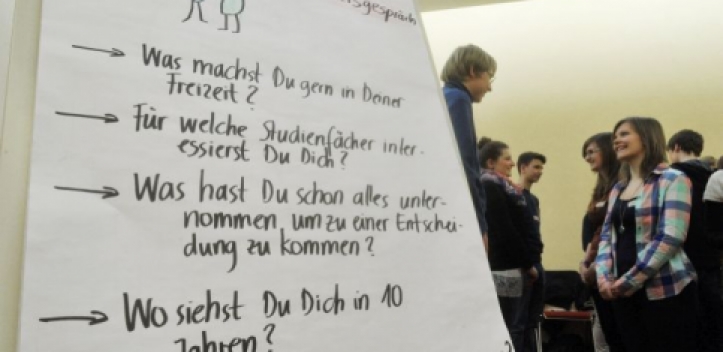 sgespräch
→ Was machst Du gern in Deiner
Freizeit?
→ Für welche Studienfächer inter-
essierst Du Dich?
→ Was hast Du schon alles unter-
nommen, um zu einer Entschei-
dung zu kommen?
→ Wo siehst Du Dich in 10
Jahren?